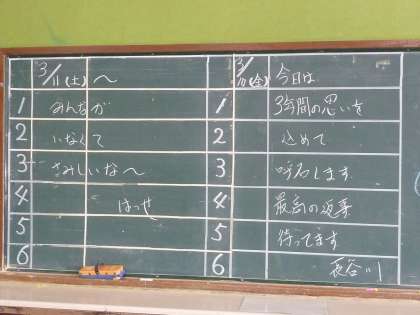 3/11(土)〜
1 みんなが
2 いなくて
3 さみしいな〜
4 はっせ
5
6
3/11(金) 今日は
1 3年間の思いを
2 込めて
3 呼名します
4 最高の返事
5 待ってます
6 長谷川